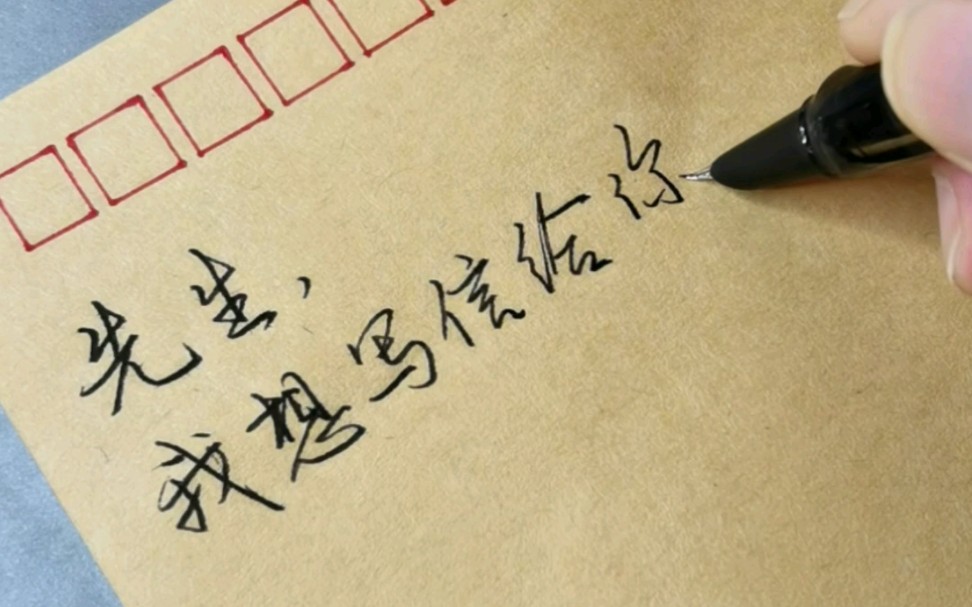 先生，
我想写信给你